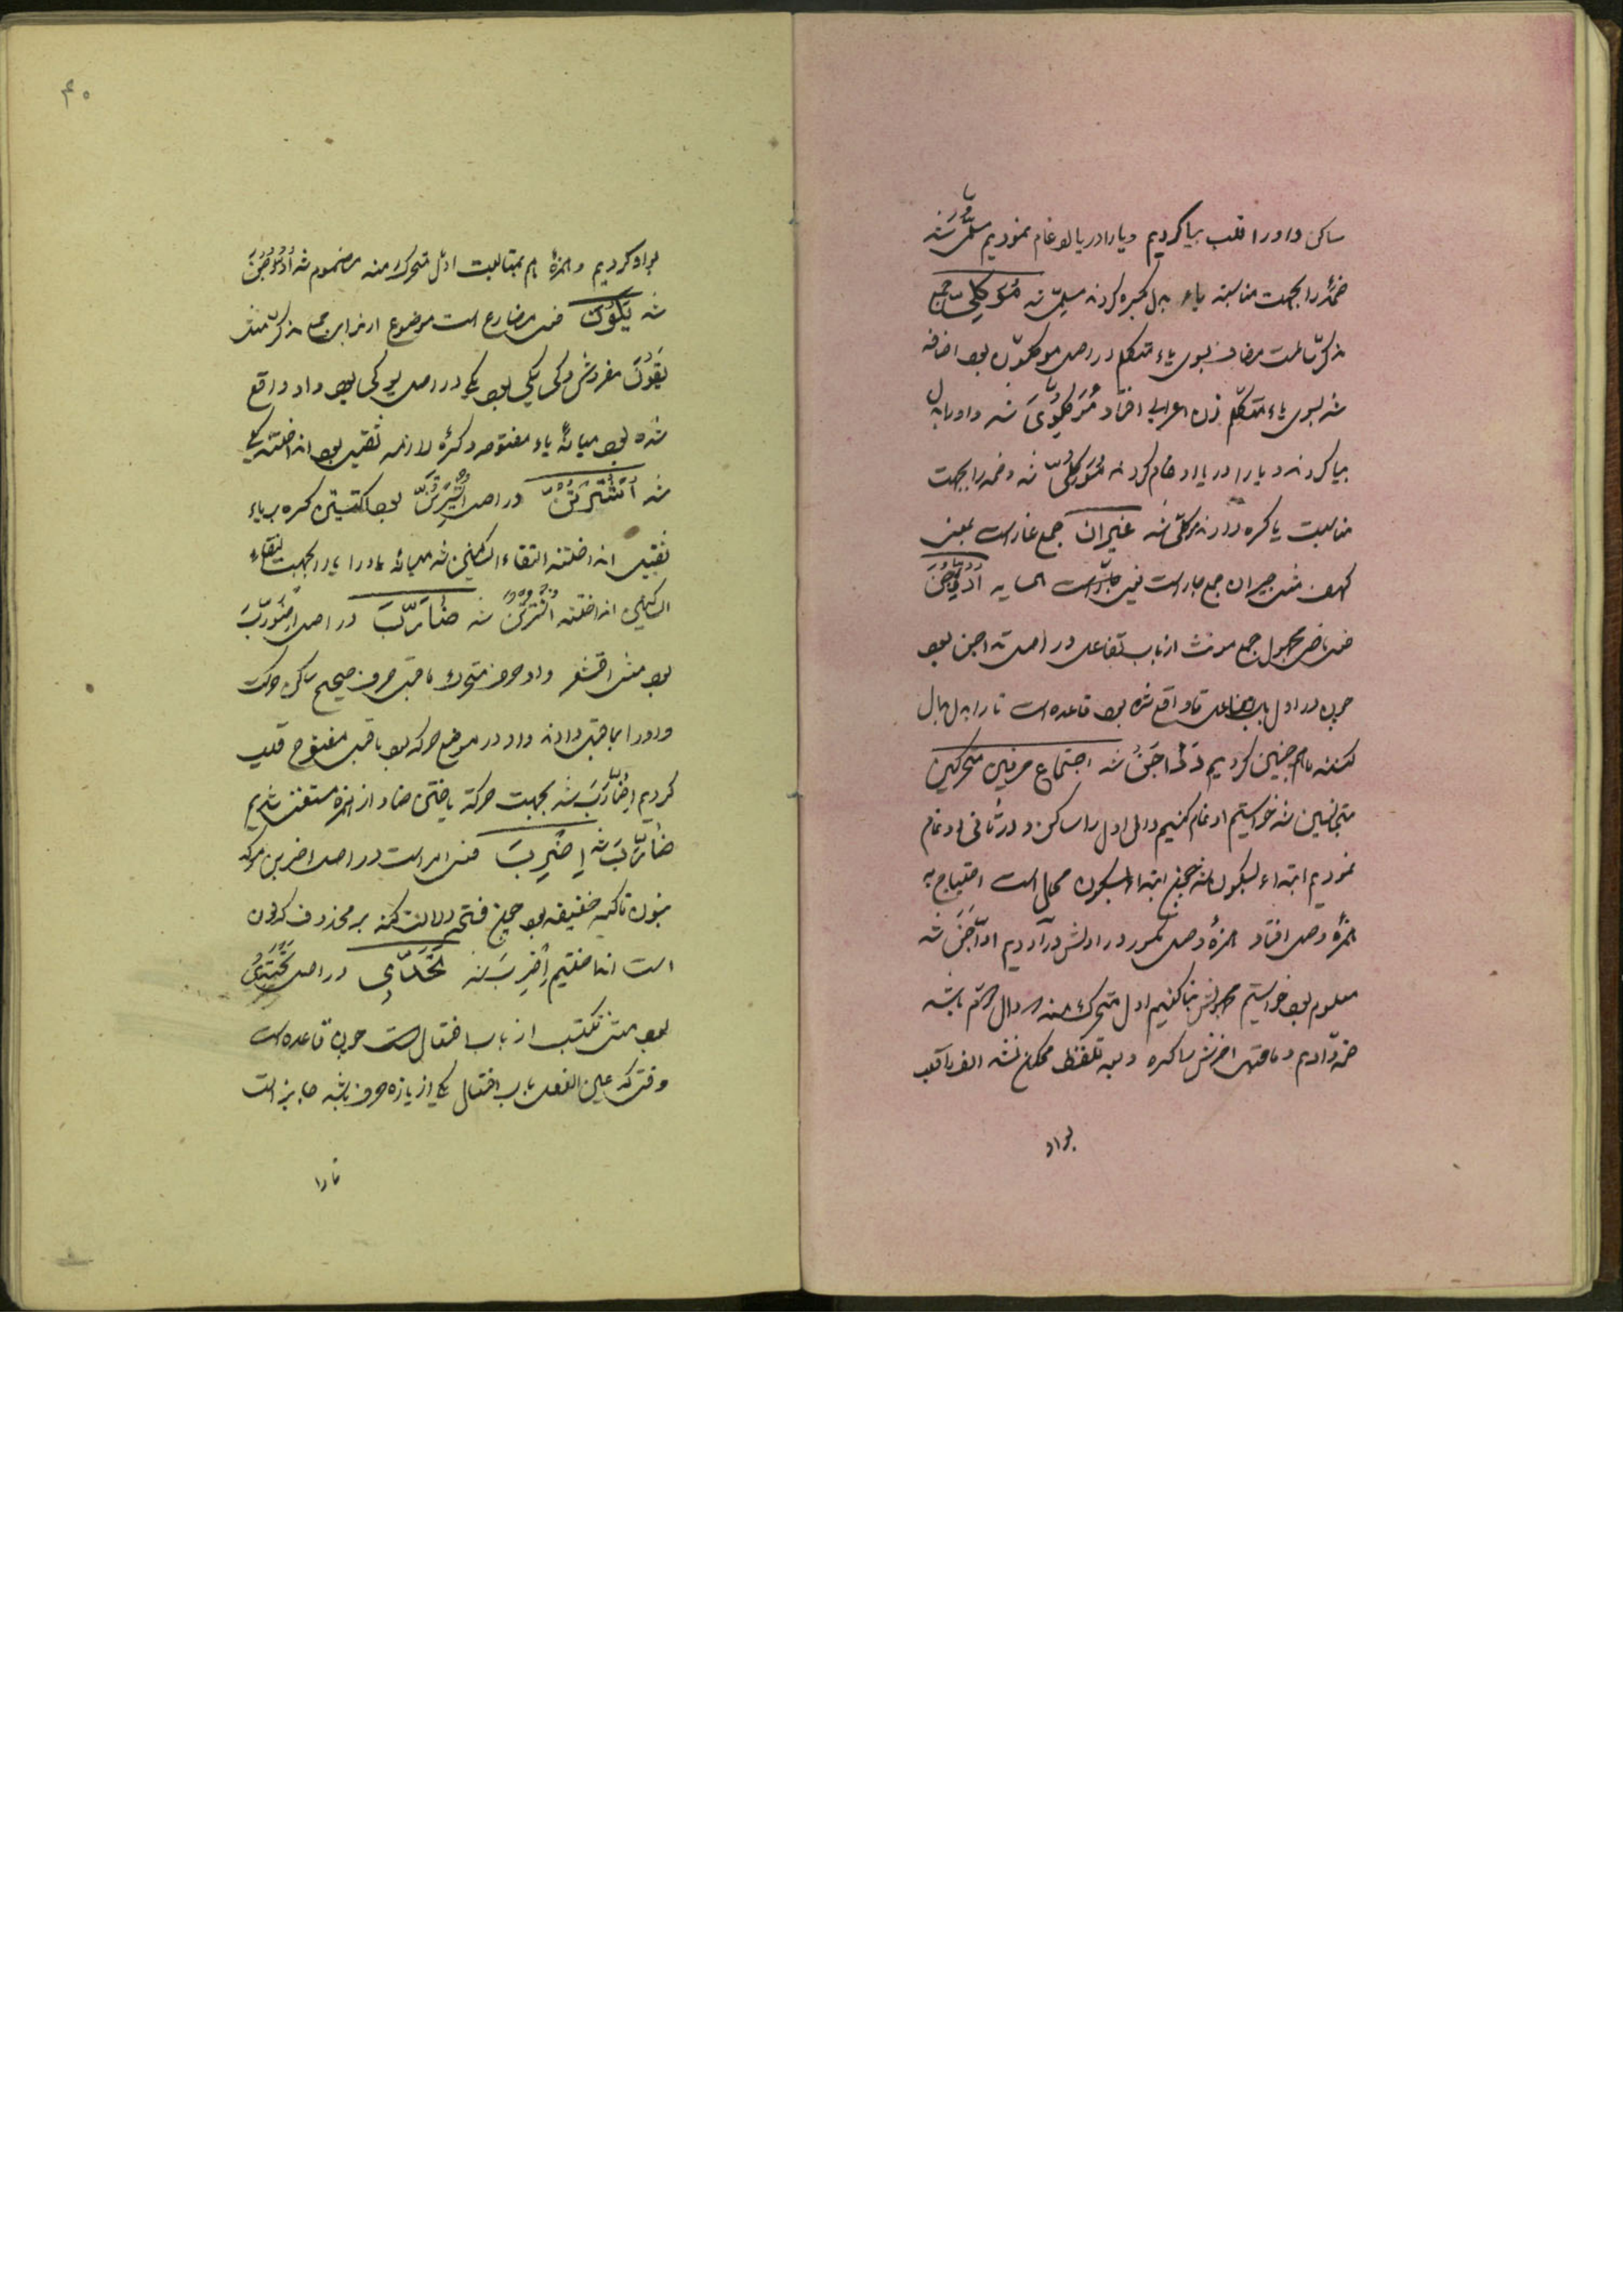 ساکن واو را قلب بیا کردیم و یا را در یا ادغام نمودیم مسلمی شد
ضمه را بجهت مناسبت یاء بدل بکسره کردند مسلمی شد مُوَکِلِیّ جمع
مذکر سالمست مضاف بسوی یاء متکلم در اصل موکلون بود اضافه
شد بسوی یاء متکلم نون اعرابی افتاد مُوَکِلُویَ شد واو را بدل
بیا کردند و یا را در یا ادغام کردند مُوَکِلُیّ شد و ضمه را بجهت
مناسبت یا کسره دادند موکلی شد غیران جمع غار است بمعنی
کهف مثل جیران جمع جار است یعنی همسایه
فعل ماضی مجهول جمع مونث از باب تفاعل در اصل تداجن بود
چون در اول باب تفاعل تا واقع شده بود قاعده است تا را بدل بدال
کنند ما هم چنین کردیم شد اجتماع حرفین متحرکین
متجانسین شد خواستیم ادغام کنیم دال اول را ساکن و در ثانی ادغام
نمودیم ابتداء بسکون شد چون ابتداء بسکون محال است احتیاج به
همزهٔ وصل افتاد همزهٔ وصل مکسور در اولش در آوردیم ادّاجَنَ شد
معلوم بود خواستیم مجهولش بنا کنیم اول متحرک منه را دال باشد
ضمه دادیم و ماقبل آخرش را کسره و به تلفظ ممکن نشد الف را قلب
بواو
۴۰
بواو کردیم و همزهٔ هم بمتابعت اول متحرک منه مضموم شد
شد یَکُونَ فعل مضارع است موضوع از برای جمع مذکر مثل
یَقُونَ مفردش وکی یکی بود یکی در اصل یوکی بود واو واقع
شده بود میانهٔ یاء مفتوحه و کسرهٔ لازمه ثقیل بود انداختند یکی
شد در اصل بود کسره بر یاء
ثقیل انداختند التقاء ساکنین شد میانه واو و یا یا را بجهت التقاء
ساکنین انداختند شد ضٰارَبَّ در اصل اِضْوَرَبَّ
بود مثل اقشعر واو حرف متحرک ماقبل حرف صحیح ساکن حرکت
واو را بماقبل دادند واو در موضع حرکه بود ماقبل مفتوح قلب
کردیم اِضٰارَبَّ شد بجهت حرکة یافتن ضاد از همزه مستغنی شدیم
ضٰارَبَّ شد اِضْرِبَ فعل امر است در اصل اضربن موکد
بنون تاکید خفیفه بود چون فتحه دلالت کند بر محذوف که نون
است انداختیم اِضْرِبَ شد در اصل
بود مثل تکتسب از باب افتعال است چون قاعده است
وقتی که عین الفعل باب افتعال یکی از یازده حرف باشد جایز است
تا را